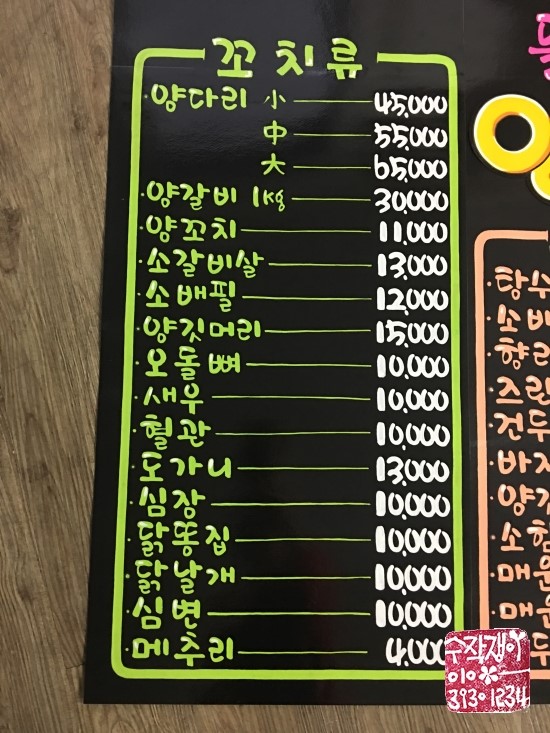 꼬치류
·양다리 小 45,000
中 55,000
大 65,000
·양갈비 1kg 30,000
·양꼬치 11,000
·소갈비살 13,000
·소배필 12,000
·양깃머리 15,000
·오돌뼈 10,000
·새우 10,000
·혈관 10,000
·도가니 13,000
·심장 10,000
·닭똥집 10,000
·닭날개 10,000
·심변 10,000
·메추리 4,000
·탕수
·향라
·즈란
·건두
·바지
·소힘
·매운
·매운
수작쟁이
010
3930 1234